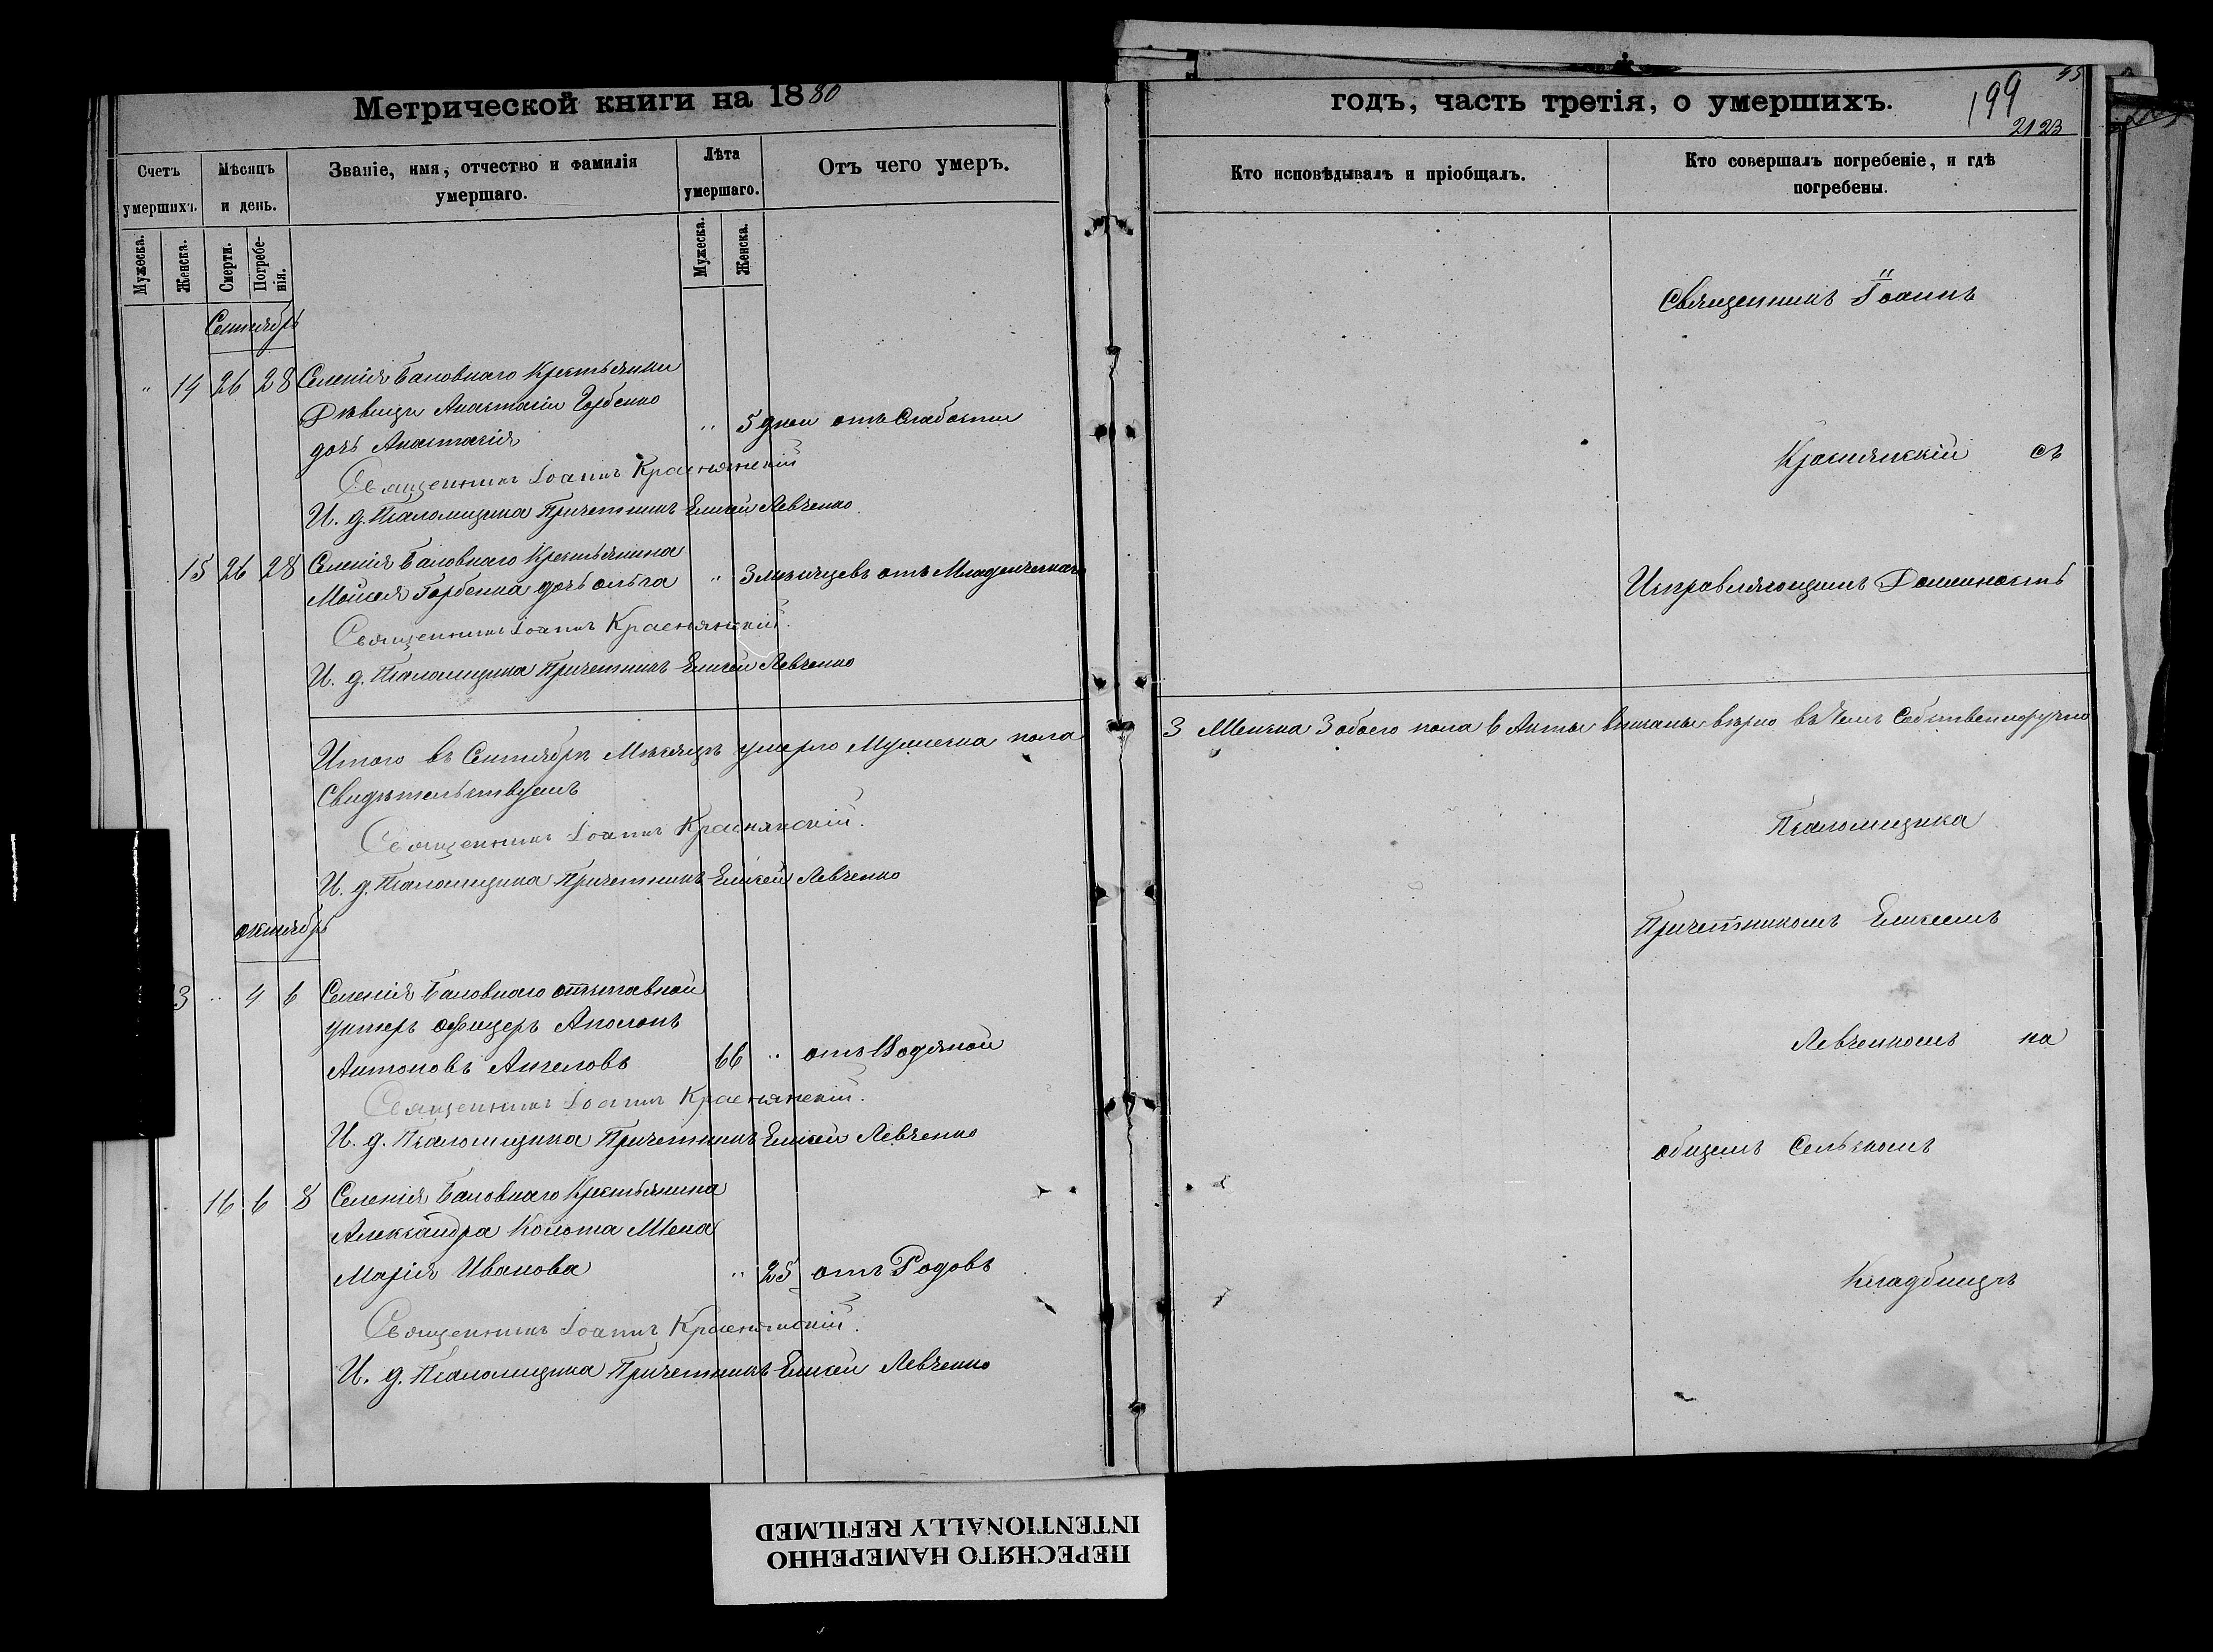 Метрической книги на 1880
Счетъ умершихъ.
Мѣсяцъ и день.
Званіе, имя, отчество и фамилія умершаго.
Лѣта умершаго.
Отъ чего умеръ.
Мужеска.
Женска.
Смерти.
Погребенія.
Мужеска.
Женска.
Сентябрь
" 14 26 28 Селенія Баловнаго Крестьянки
Дѣвицы Анастасіи Горбенко
дочь Анастасія " 5 дней отъ Слабости
Священникъ Іоаннъ Краснянскій
И. д. Псаломщика Причетникъ Елисей Левченко
15 26 28 Селенія Баловнаго Крестьянина
Моисея Горбенка дочь Ольга " 3 мѣсяцевъ отъ Младенческаго
Священникъ Іоаннъ Краснянскій.
И. д. Псаломщика Причетникъ Елисей Левченко
Итого въ Сентябрѣ Мѣсяцѣ умерло Мужеска пола
Свидѣтельствуемъ
Священникъ Іоаннъ Краснянскій.
И. д. Псаломщика Причетникъ Елисей Левченко
октябрь
3 " 4 6 Селенія Баловнаго отставной
унтеръ офицеръ Аполонъ
Антоновъ Ангеловъ 66 " отъ Водяной
Священникъ Іоаннъ Краснянскій.
И. д. Псаломщика Причетникъ Елисей Левченко
16 6 8 Селенія Баловнаго Крестьянина
Александра Колота Жена
Марія Иванова " 25 отъ Родовъ
Священникъ Іоаннъ Краснянскій.
И. д. Псаломщика Причетникъ Елисей Левченко
годъ, часть третія, о умершихъ.
199
45
2123
Кто исповѣдывалъ и пріобщалъ.
Кто совершалъ погребеніе, и гдѣ погребены.
Священникъ Іоаннъ
Краснянскій съ
Исправляющимъ Должность
3 Женска 3 обоего пола 6 Акты вписаны вѣрно въ Чемъ Собственноручно
Псаломщика
Причетникомъ Елисеемъ
Левченкомъ на
общемъ Сельскомъ
Кладбищѣ
ПЕРЕСНЯТО НАМЕРЕННО
INTENTIONALLY REFILMED